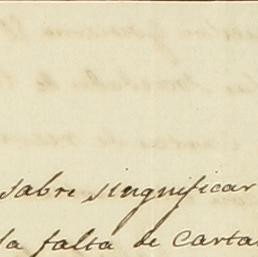 sabre singnificar
la falta de Carta